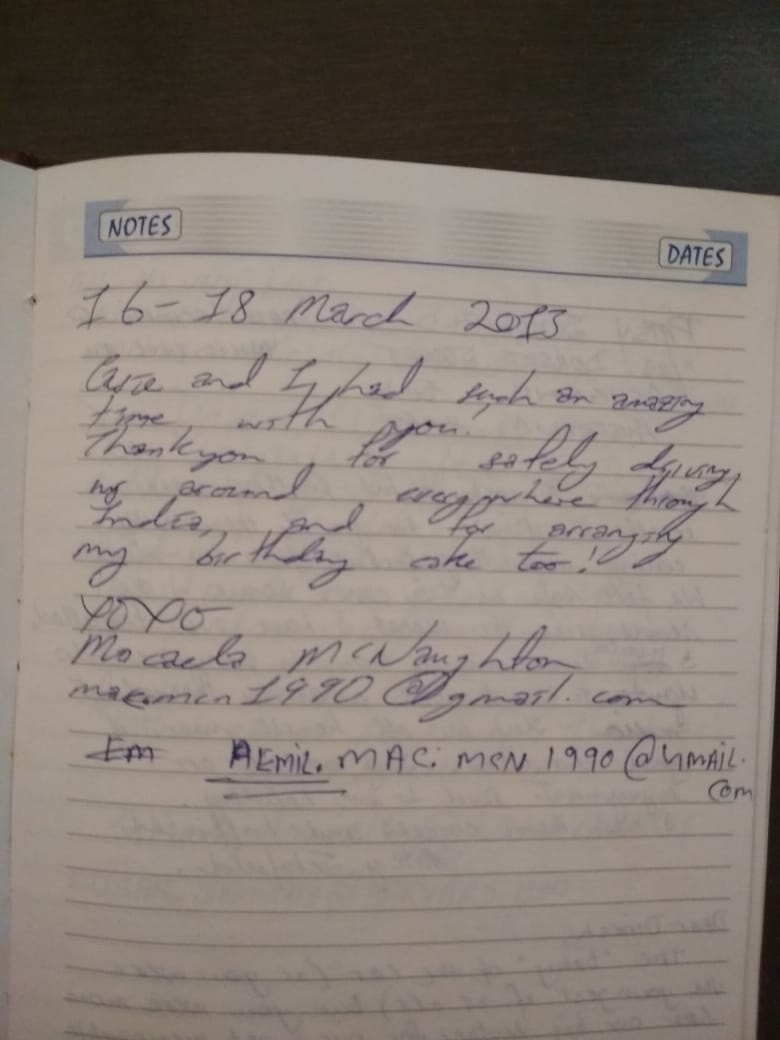 NOTES
DATES
16-18 March 2013
and I had such an amazing
time with you!
Thankyou for safely driving
me around everywhere through
India, and for arranging
my birthday cake too!
XOXO
McNaughton
1990@gmail.com
Em AEMIL. MAC. MCN 1990@GMAIL.
COM